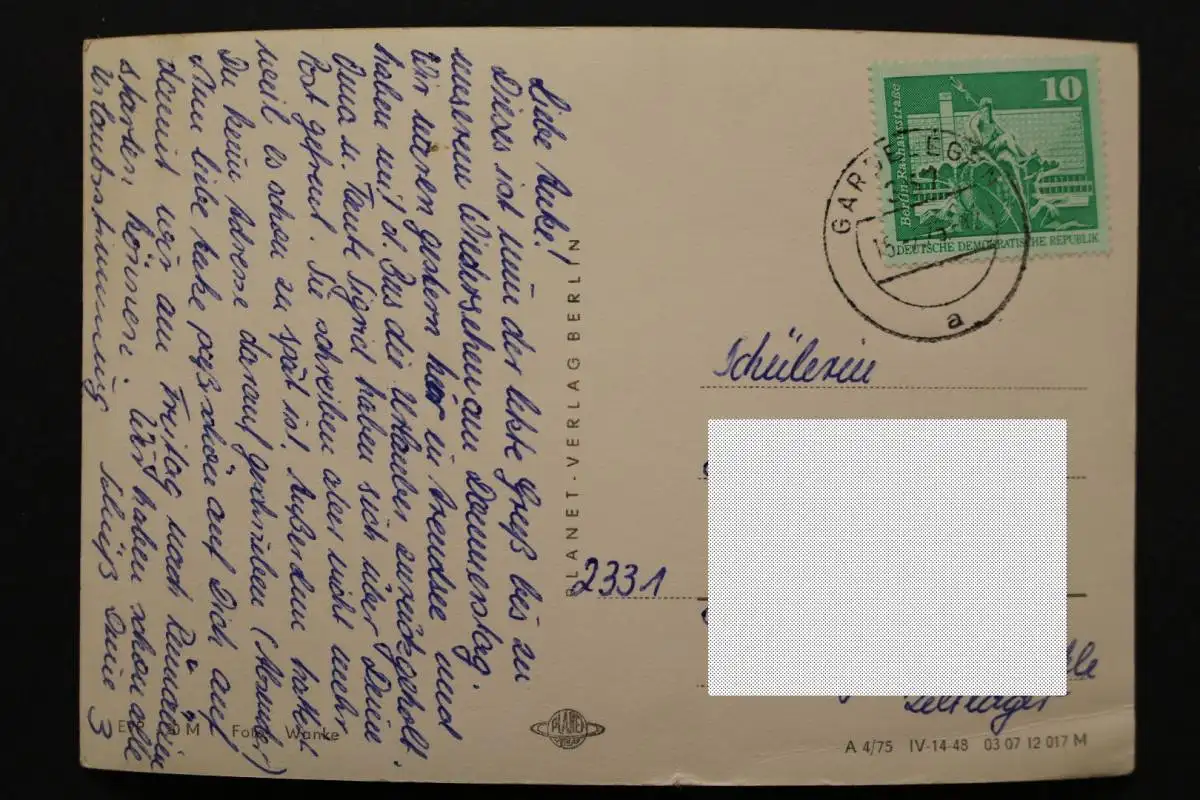 Liebe Anke!
Dieses ist nun der letzte Gruß bis zu
unserem Wiedersehen am Donnerstag.
Wir waren gestern hier in Arendsee und
haben mit d. Bus die Urlauber zurückgeholt.
Oma u. Tante Sigrid haben sich über Deine
Post gefreut. Sie schreiben aber nicht mehr
weil es schon zu spät ist. Außerdem hattest
Du keine Adresse darauf geschrieben (Absender)
Nun liebe Anke paß schön auf Dich auf
damit wir am Freitag nach Rumänien
starten können. Wir haben schon alle
Urlaubsstimmung Tschüß Deine 3
PLANET-VERLAG BERLIN
10
Berlin-Rathausstraße
DEUTSCHE DEMOKRATISCHE REPUBLIK
GARDELEGEN
15
a
Schülerin
2331
Zeltlager
M Foto: Wanke
PLANET
VERLAG
A 4/75 IV-14-48 03 07 12 017 M